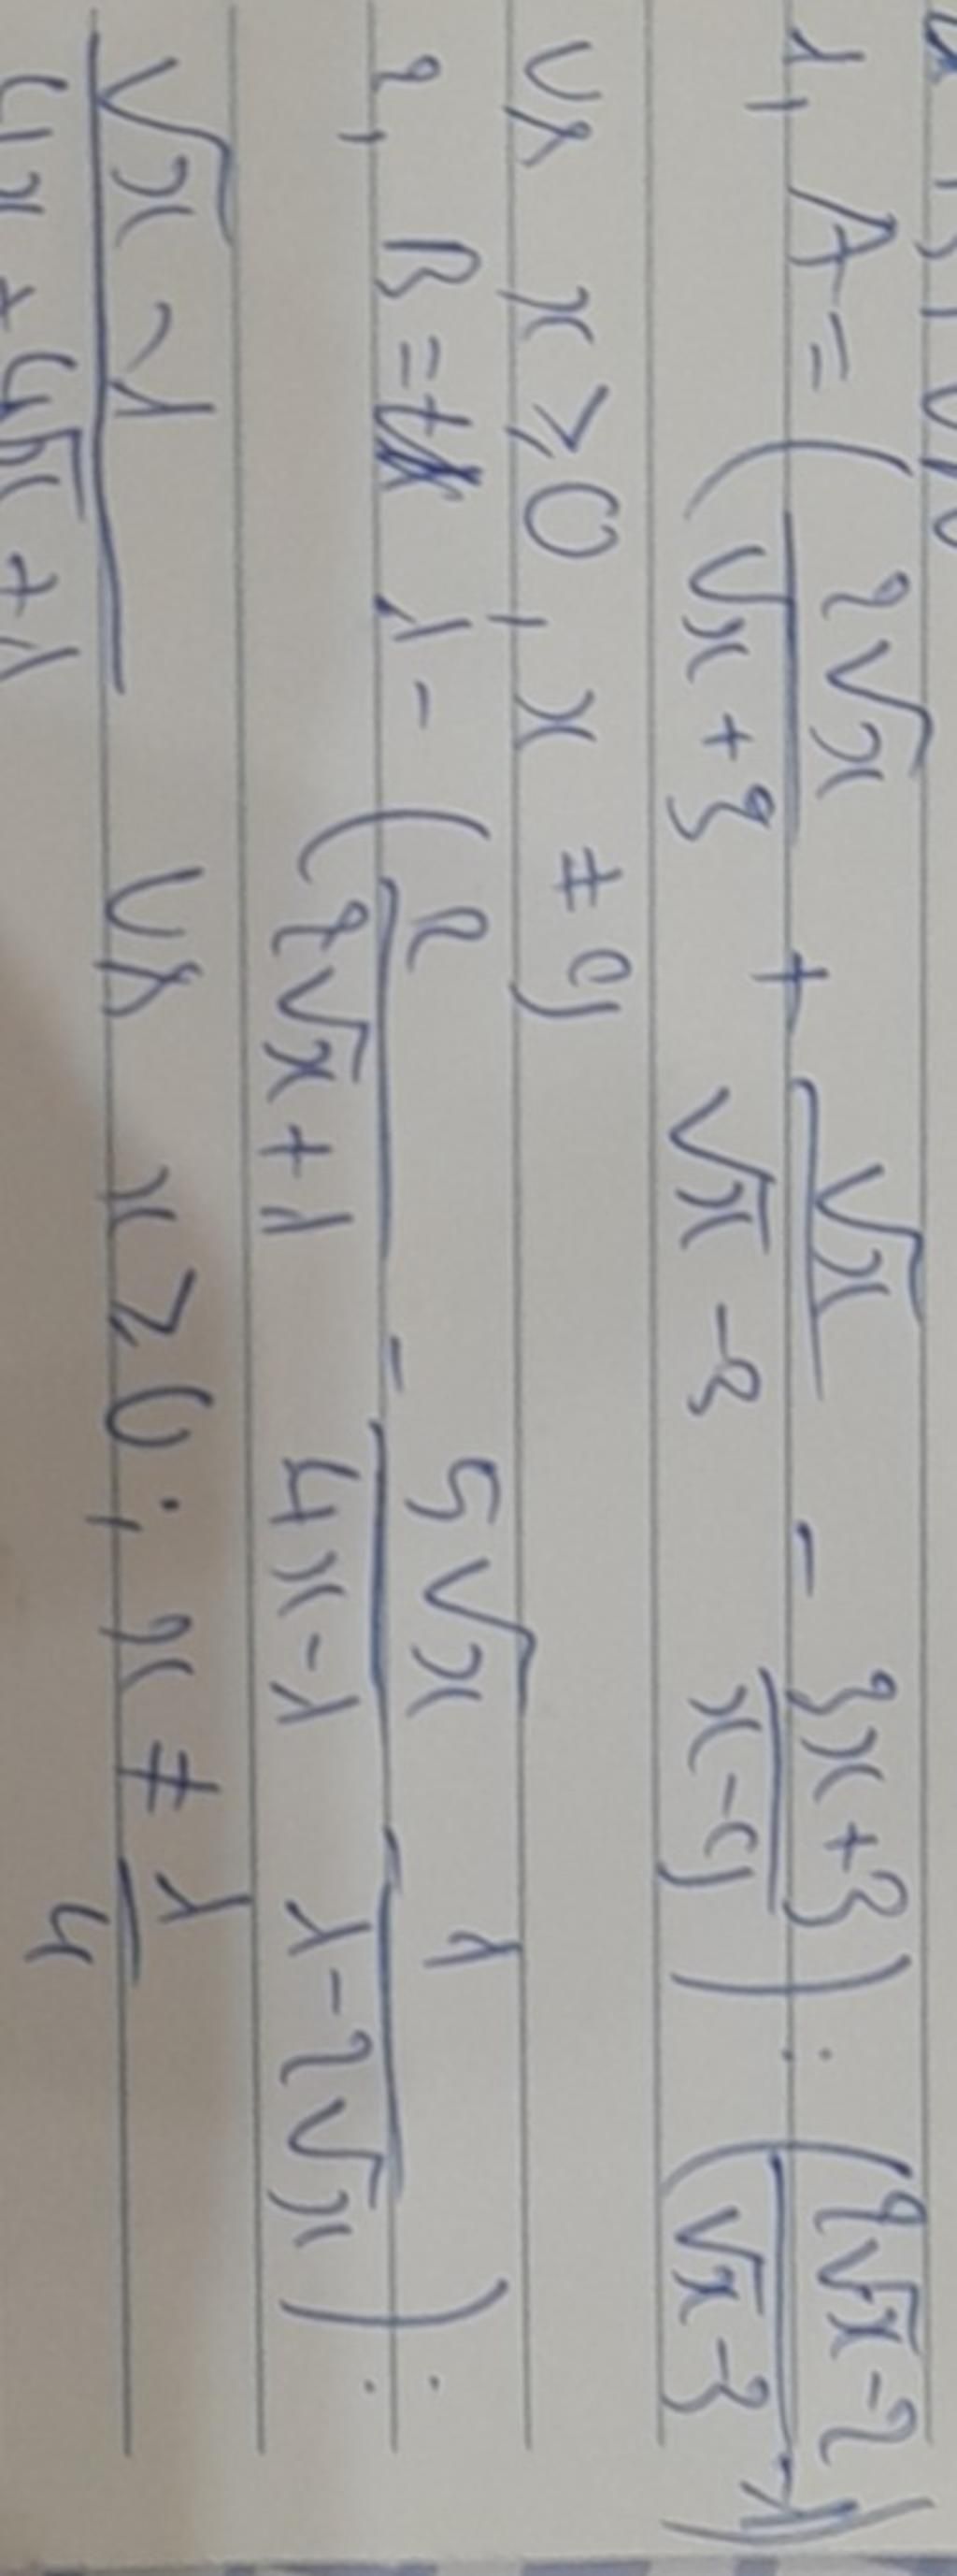 1, A = ( 2√x / √x + 3 + √x / √x - 3 - 3x + 3 / x - 9 ) : ( 2√x - 2 / √x - 3 - 1 )
Vs x ≥ 0, x ≠ 9
2, B = 1 - ( 2 / 2√x + 1 - 5√x / 4x - 1 - 1 / 1 - 2√x ) :
√x - 1 / 4x + 4√x + 1 Vs x ≥ 0 ; x ≠ 1/4